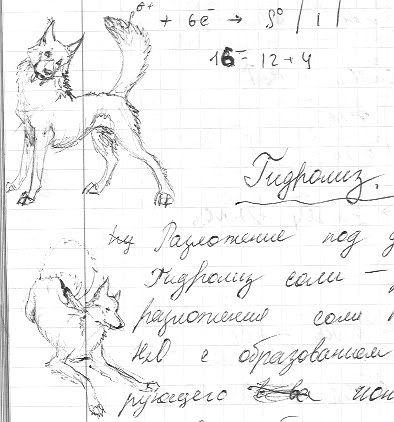 S⁶⁺ + 6ē → S⁰ | 1 |
16 - 12 + 4
Гидролиз.
Разложение под
Гидролиз соли —
разложение соли
H₂O с образованием
рующего ион